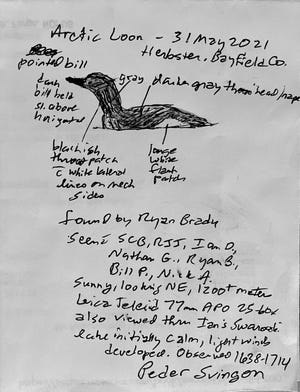 Arctic Loon - 31 May 2021
Herbster, Bayfield Co.
pointed bill
gray
dark gray than head/nape
dark
bill held
sl. above
horizontal
blackish
throat patch
c̄ white lateral
lines on neck
sides
large
white
flank
patch
found by Ryan Brady
Seen c̄ SCB, RJJ, Ian D,
Nathan G., Ryan B,
Bill P., Nick A.
Sunny, looking NE, 1200+ meter
Leica Televid 77mm APO 25-60x
also viewed thru Ian's Swarovski
Lake initially calm, light winds
developed. Observed 1638-1714
Peder Svingen